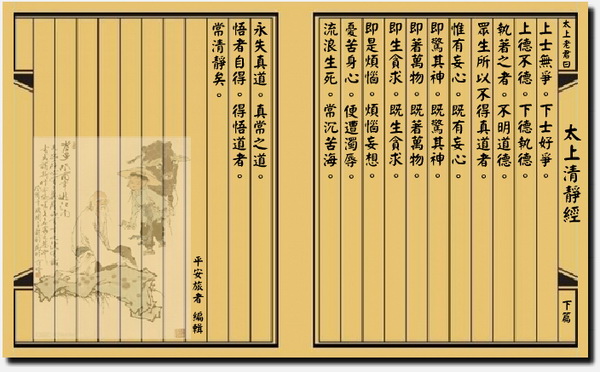 太上清靜經
下篇
太上老君曰
上士無爭。下士好爭。
上德不德。下德執德。
執著之者。不明道德。
眾生所以不得真道者。
惟有妄心。既有妄心。
即驚其神。既驚其神。
即著萬物。既著萬物。
即生貪求。既生貪求。
即是煩惱。煩惱妄想。
憂苦身心。便遭濁辱。
流浪生死。常沉苦海。
永失真道。真常之道。
悟者自得。得悟道者。
常清靜矣。
平安旅者 編輯